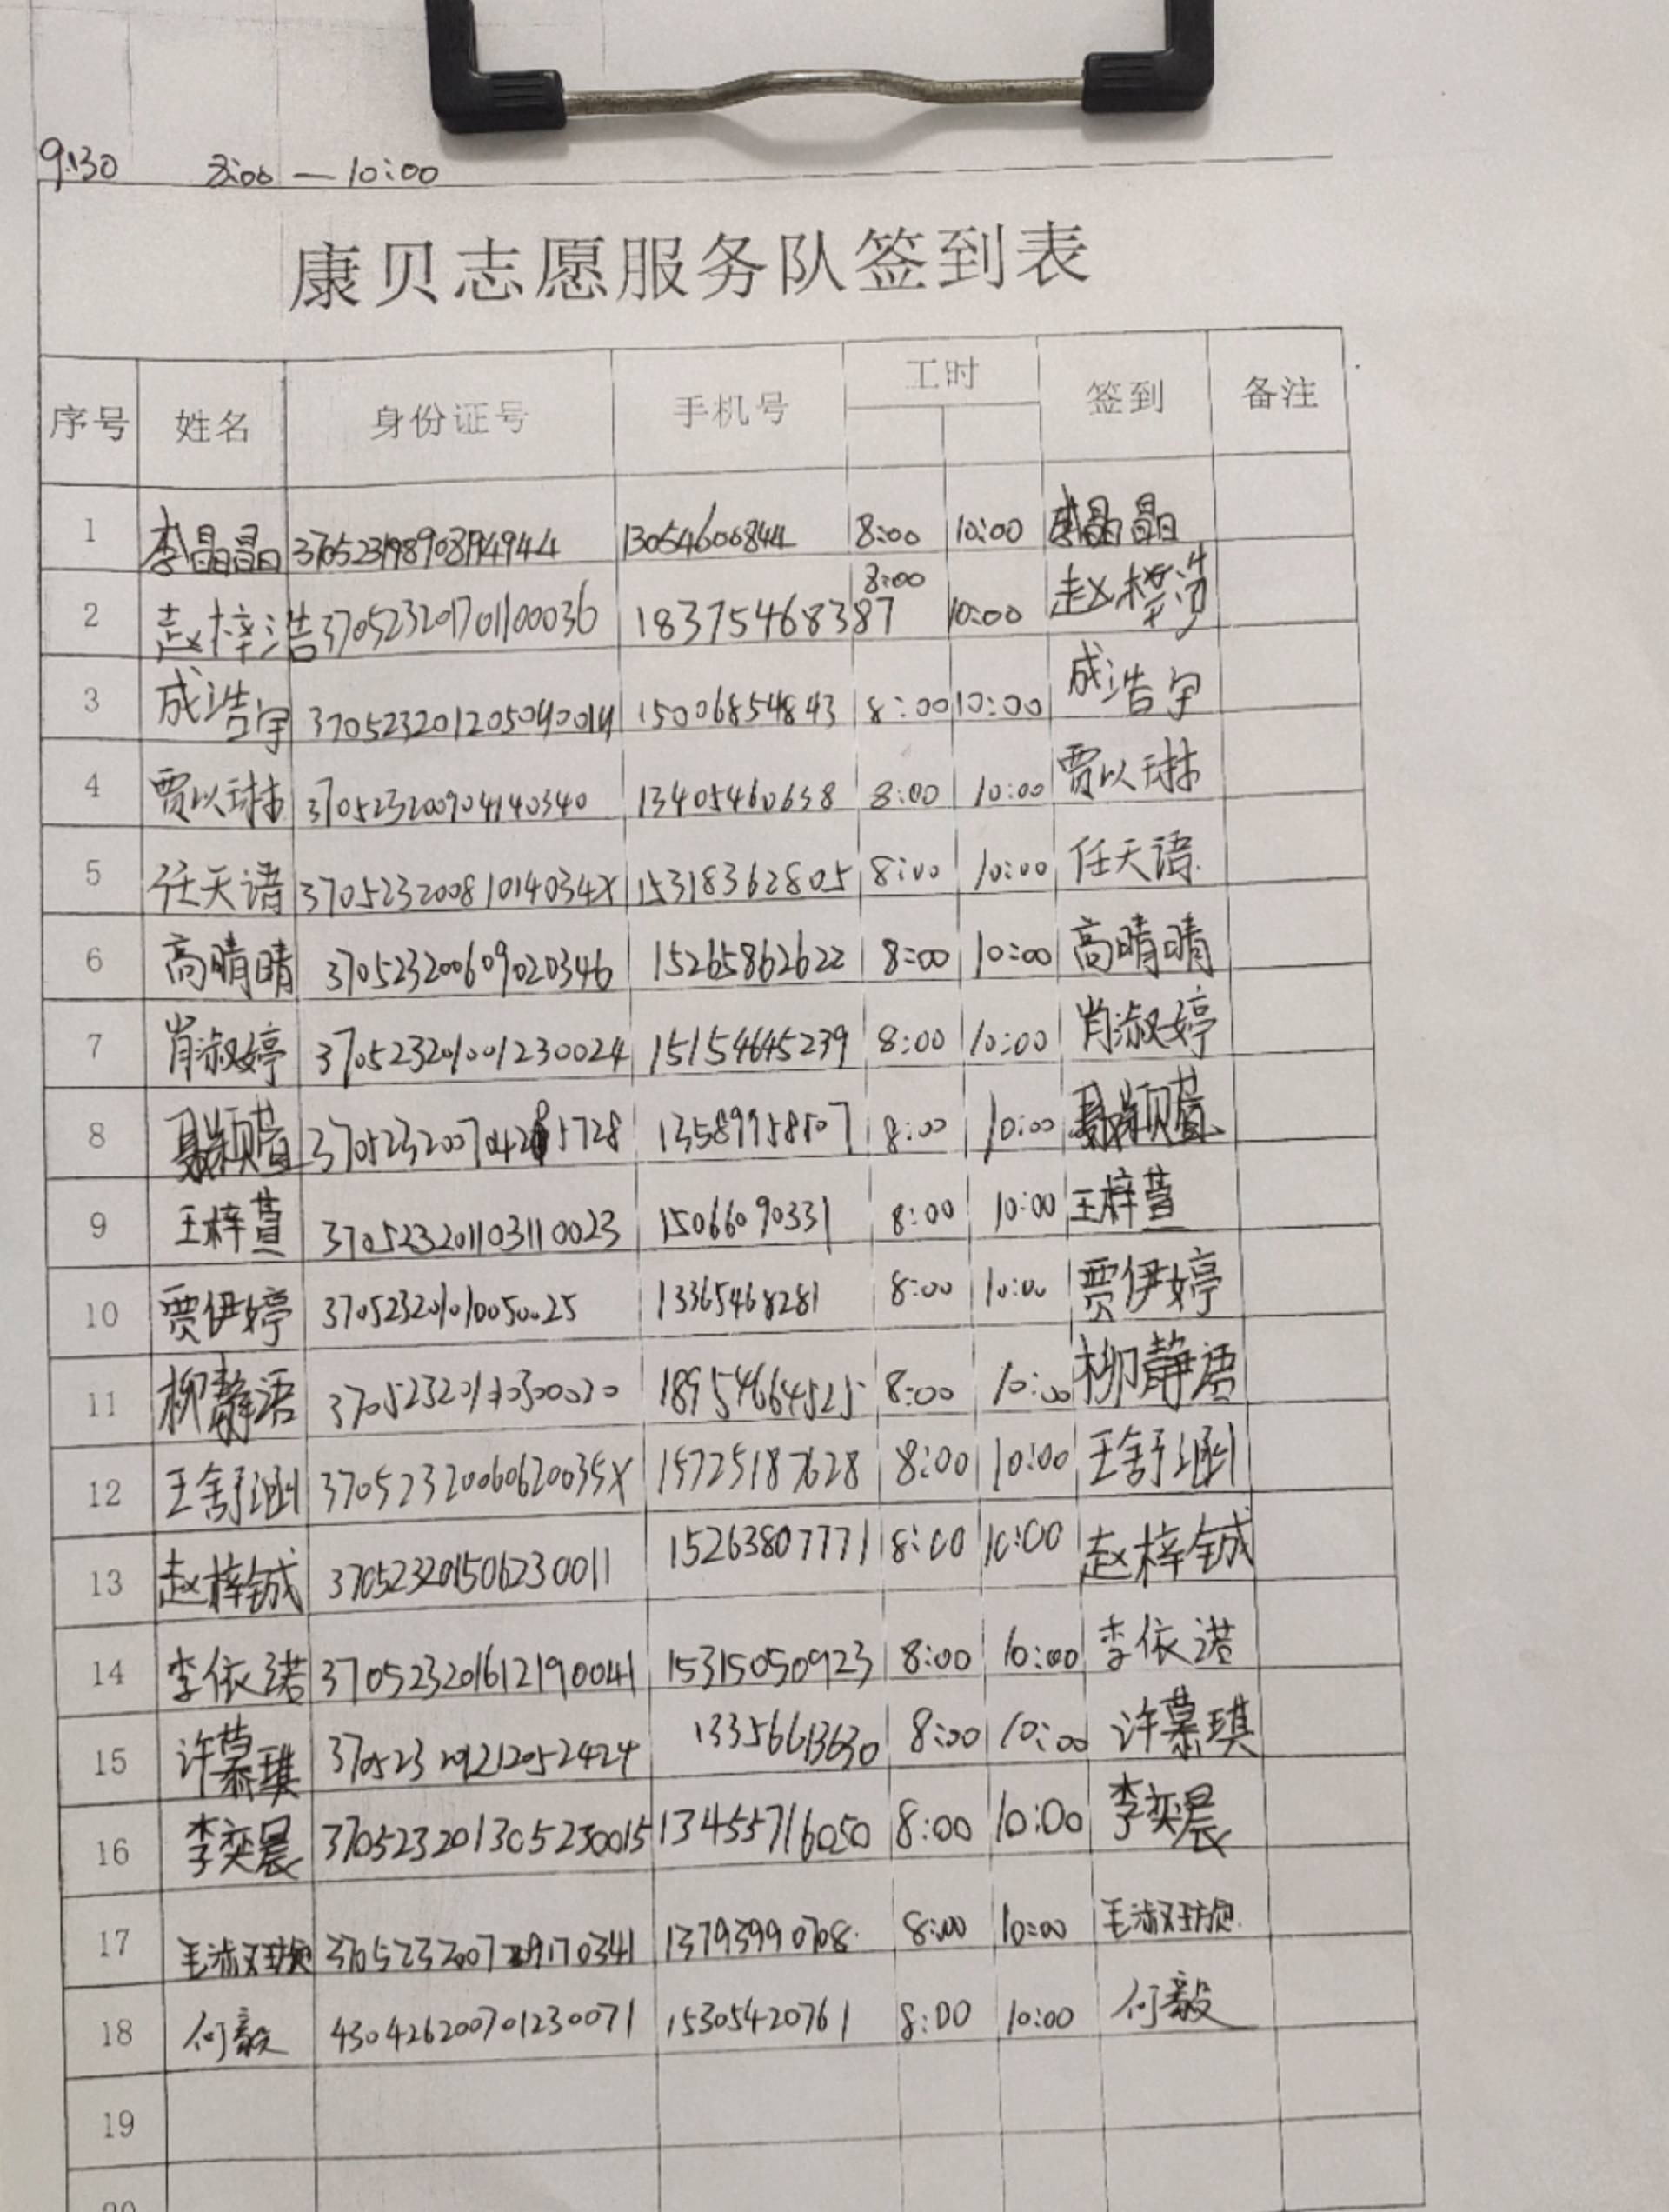 9:30 8:00 — 10:00
康贝志愿服务队签到表
序号 姓名 身份证号 手机号 工时 签到 备注
1 李晶晶 13054600844 8:00 10:00 李晶晶
2 赵梓浩 370523201701100036 18375468387 8:00 10:00 赵梓浩
3 成浩宇 370523201205040014 15006854843 8:00 10:00 成浩宇
4 贾以琳 370523200904140340 13405460638 8:00 10:00 贾以琳
5 任天语 37052320081014034X 15318362805 8:00 10:00 任天语
6 高晴晴 370523200609020346 15265862622 8:00 10:00 高晴晴
7 肖淑婷 370523201001230024 15154645239 8:00 10:00 肖淑婷
8 聂颖萱 13589958507 8:00 10:00 聂颖萱
9 王梓萱 370523201103110023 15066090331 8:00 10:00 王梓萱
10 贾伊婷 13365468281 8:00 10:00 贾伊婷
11 柳静语 18954664525 8:00 10:00 柳静语
12 王舒涵 37052320060620035X 15725187628 8:00 10:00 王舒涵
13 赵梓铖 370523201506230011 15263807771 8:00 10:00 赵梓铖
14 李依诺 370523201612190041 15315050923 8:00 10:00 李依诺
15 许慕琪 370523201212052424 13356613630 8:00 10:00 许慕琪
16 李奕晨 370523201305230015 13455716050 8:00 10:00 李奕晨
17 毛淑 13793990708 8:00 10:00 毛淑
18 何毅 430426200701230071 15305420761 8:00 10:00 何毅
19
20